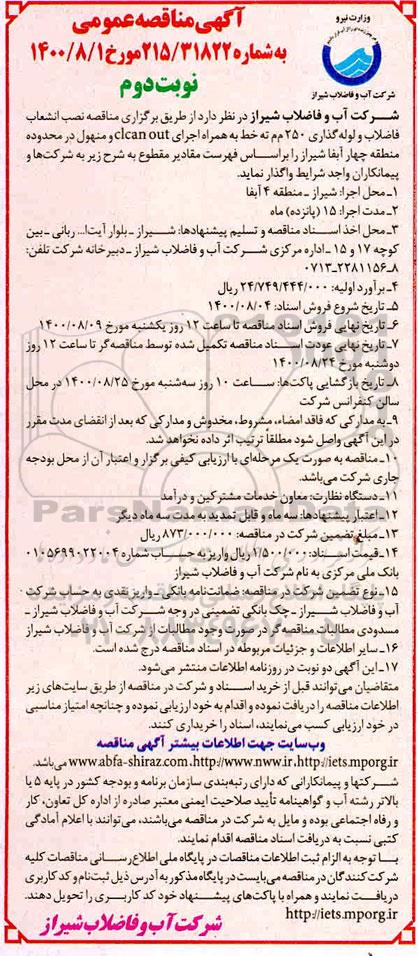 وزارت نیرو
شرکت آب و فاضلاب شیراز
آگهی مناقصه عمومی
به شماره ۲۱۵/۳۱۸۲۲ مورخ ۱۴۰۰/۸/۱
نوبت دوم
شرکت آب و فاضلاب شیراز در نظر دارد از طریق برگزاری مناقصه نصب انشعاب
فاضلاب و لوله گذاری ۲۵۰ م‌م ته خط به همراه اجرای clean out و منهول در محدوده
منطقه چهار آبفا شیراز را براساس فهرست مقادیر مقطوع به شرح زیر به شرکت‌ها و
پیمانکاران واجد شرایط واگذار نماید.
۱ـ محل اجرا: شیراز ـ منطقه ۴ آبفا
۲ـ مدت اجرا: ۱۵ (پانزده) ماه
۳ـ محل اخذ اسناد مناقصه و تسلیم پیشنهادها: شیراز ـ بلوار آیت‌ا... ربانی ـ بین
کوچه ۱۷ و ۱۵ ـ اداره مرکزی شرکت آب و فاضلاب شیراز ـ دبیرخانه شرکت تلفن:
۸ـ۰۷۱۳۲۲۸۱۱۵۶
۴ـ برآورد اولیه: ۲۴/۷۴۹/۴۴۴/۰۰۰ ریال
۵ـ تاریخ شروع فروش اسناد: ۱۴۰۰/۰۸/۰۴
۶ـ تاریخ نهایی فروش اسناد مناقصه تا ساعت ۱۲ روز یکشنبه مورخ ۱۴۰۰/۰۸/۰۹
۷ـ تاریخ نهایی عودت اسناد مناقصه تکمیل شده توسط مناقصه‌گر تا ساعت ۱۲ روز
دوشنبه مورخ ۱۴۰۰/۰۸/۲۴
۸ـ تاریخ بازگشایی پاکت‌ها: ساعت ۱۰ روز سه‌شنبه مورخ ۱۴۰۰/۰۸/۲۵ در محل
سالن کنفرانس شرکت
۹ـ به مدارکی که فاقد امضاء، مشروط، مخدوش و مدارکی که بعد از انقضای مدت مقرر
در این آگهی واصل شود مطلقاً ترتیب اثر داده نخواهد شد.
۱۰ـ مناقصه به صورت یک مرحله‌ای با ارزیابی کیفی برگزار و اعتبار آن از محل بودجه
جاری شرکت می‌باشد.
۱۱ـ دستگاه نظارت: معاون خدمات مشترکین و درآمد
۱۲ـ اعتبار پیشنهادها: سه ماه و قابل تمدید به مدت سه ماه دیگر
۱۳ـ مبلغ تضمین شرکت در مناقصه: ۸۷۳/۰۰۰/۰۰۰ ریال
۱۴ـ قیمت اسناد: ۱/۵۰۰/۰۰۰ ریال واریز به حساب شماره ۰۱۰۵۶۹۹۰۲۲۰۰۴
بانک ملی مرکزی به نام شرکت آب و فاضلاب شیراز
۱۵ـ نوع تضمین شرکت در مناقصه: ضمانت‌نامه بانکی ـ واریز نقدی به حساب شرکت
آب و فاضلاب شیراز ـ چک بانکی تضمینی در وجه شرکت آب و فاضلاب شیراز ـ
مسدودی مطالبات مناقصه‌گر در صورت وجود مطالبات از شرکت آب و فاضلاب شیراز
۱۶ـ سایر اطلاعات و جزئیات مربوطه در اسناد مناقصه درج شده است.
۱۷ـ این آگهی دو نوبت در روزنامه اطلاعات منتشر می‌شود.
متقاضیان می‌توانند قبل از خرید اسناد و شرکت در مناقصه از طریق سایت‌های زیر
اطلاعات مناقصه را دریافت نموده و اقدام به خود ارزیابی نموده و چنانچه امتیاز مناسبی
در خود ارزیابی کسب می‌نمایند، اسناد را خریداری کنند.
وب‌سایت جهت اطلاعات بیشتر آگهی مناقصه
www.abfa-shiraz.com، http://www.nww.ir، http://iets.mporg.ir می‌باشد.
شرکتها و پیمانکارانی که دارای رتبه‌بندی سازمان برنامه و بودجه کشور در پایه ۵ یا
بالاتر رشته آب و گواهینامه تأیید صلاحیت ایمنی معتبر صادره از اداره کل تعاون، کار
و رفاه اجتماعی بوده و مایل به شرکت در مناقصه می‌باشند، می‌توانند با اعلام آمادگی
کتبی نسبت به دریافت اسناد مناقصه اقدام نمایند.
با توجه به الزام ثبت اطلاعات مناقصات در پایگاه ملی اطلاع رسانی مناقصات کلیه
شرکت کنندگان در مناقصه می‌بایست در پایگاه مذکور به آدرس ذیل ثبت‌نام و کد کاربری
دریافت نمایند و همراه با پاکت‌های پیشنهاد خود کد کاربری را تحویل دهند.
http://iets.mporg.ir
شرکت آب و فاضلاب شیراز